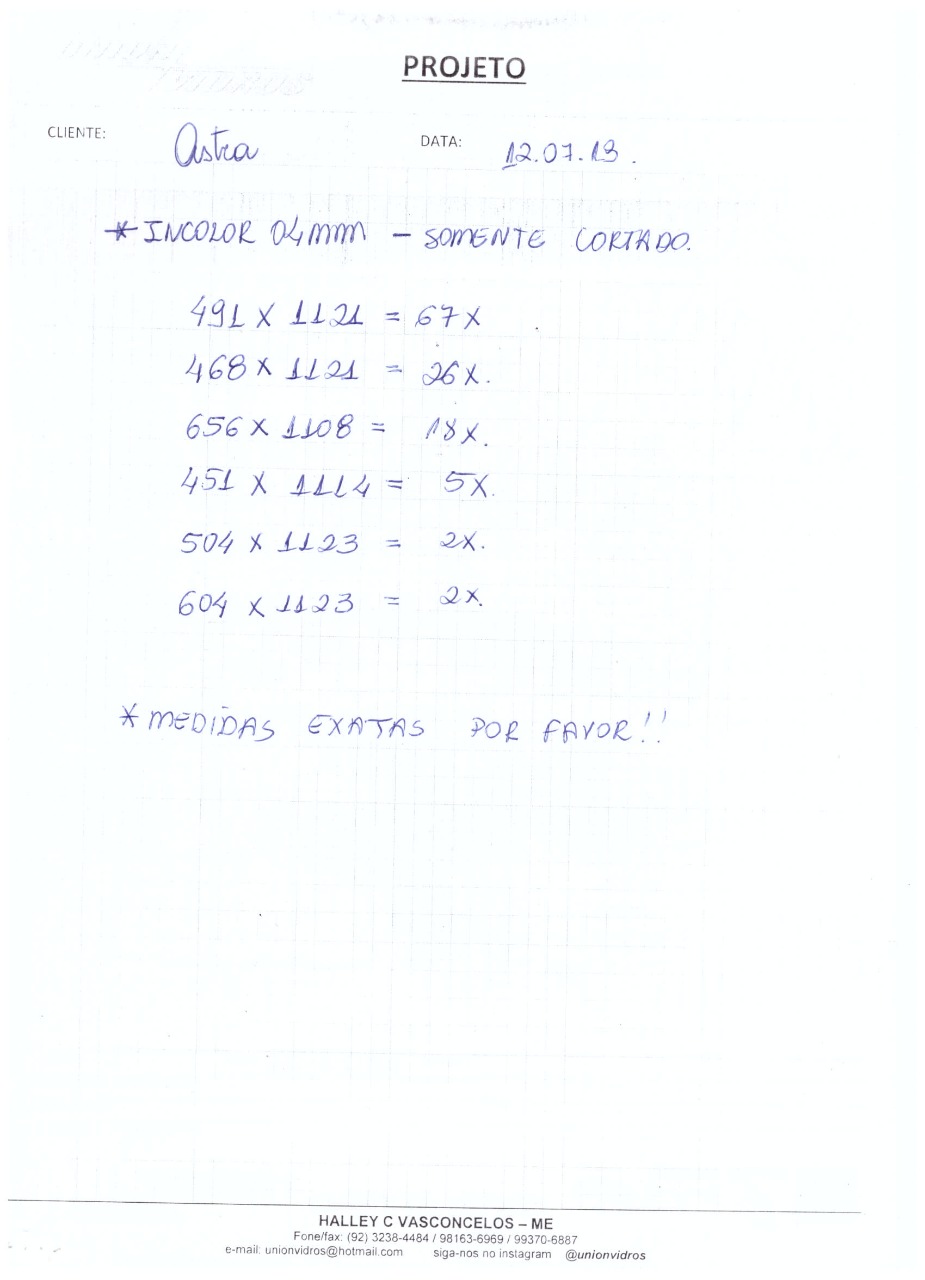 PROJETO
CLIENTE: Astra DATA: 12.07.19.
* INCOLOR 04mm - SOMENTE CORTADO.
491 X 1121 = 67X
468 X 1121 = 26X.
656 X 1108 = 18X.
451 X 1114 = 5X.
504 X 1123 = 2X.
604 X 1123 = 2X.
* MEDIDAS EXATAS POR FAVOR!!
HALLEY C VASCONCELOS – ME
Fone/fax: (92) 3238-4484 / 98163-6969 / 99370-6887
e-mail: unionvidros@hotmail.com siga-nos no instagram @unionvidros